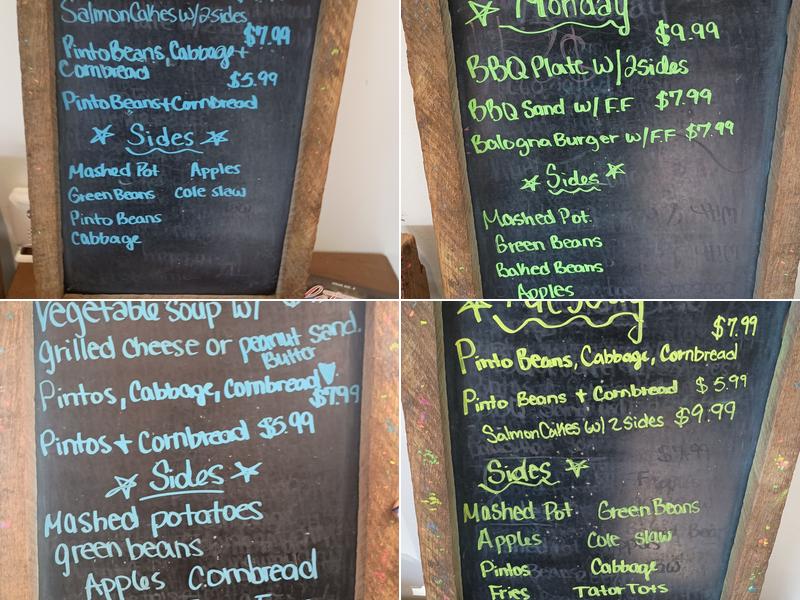 Salmon Cakes w/2sides
$7.99
Pinto Beans, Cabbage +
Cornbread
$5.99
Pinto Beans + Cornbread
Sides
Mashed Pot Apples
Green Beans Cole slaw
Pinto Beans
Cabbage
Monday
$9.99
BBQ Plate w/ 2sides
BBQ Sand w/ F.F $7.99
Bologna Burger w/ F.F $7.99
Sides
Mashed Pot.
Green Beans
Baked Beans
Apples
Vegetable Soup w/
grilled cheese or peanut Sand.
Butter
Pintos, Cabbage, Cornbread
$7.99
Pintos + Cornbread $5.99
Sides
Mashed potatoes
green beans
Apples Cornbread
$7.99
Pinto Beans, Cabbage, Cornbread
Pinto Beans + Cornbread $5.99
Salmon Cakes w/ 2 sides $9.99
Sides
Mashed Pot Green Beans
Apples Cole slaw
Pintos Cabbage
Fries Tator Tots